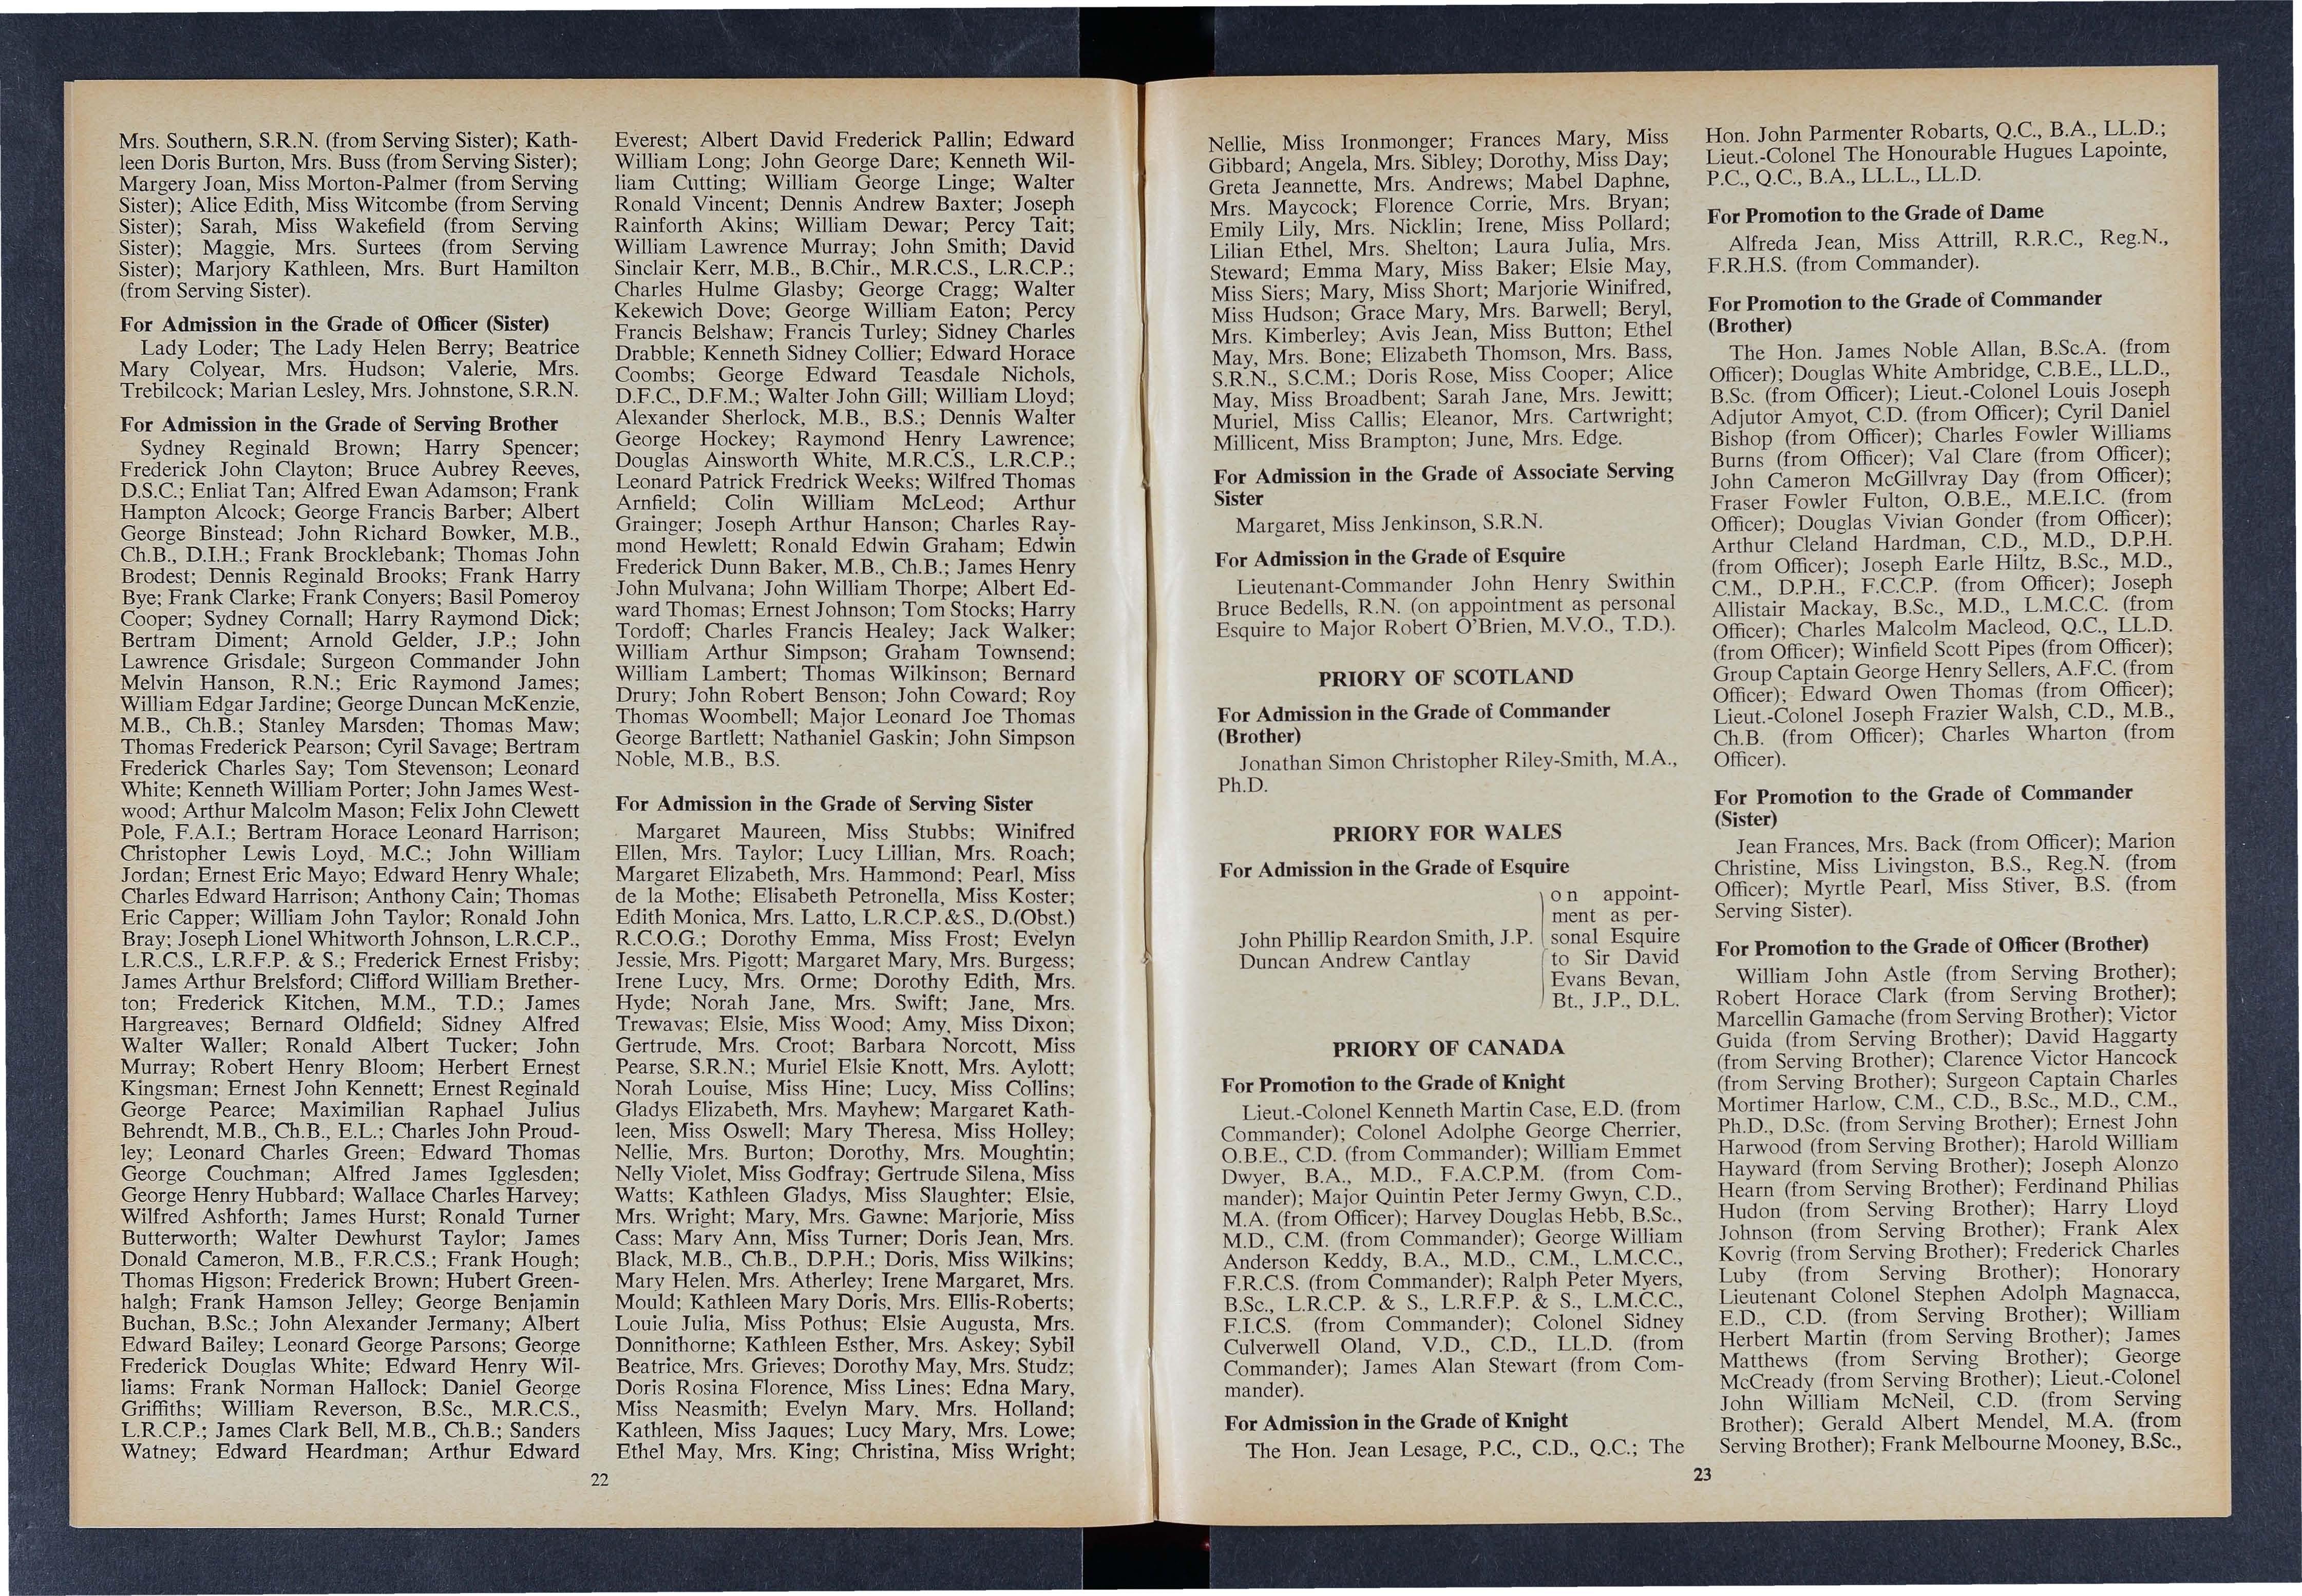 Mrs. Southern, S.R.N. (from Serving Sister); Kath-
leen Doris Burton, Mrs. Buss (from Serving Sister);
Margery Joan, Miss Morton-Palmer (from Serving
Sister); Alice Edith, Miss Witcombe (from Serving
Sister); Sarah, Miss Wakefield (from Serving
Sister); Maggie, Mrs. Surtees (from Serving
Sister); Marjory Kathleen, Mrs. Burt Hamilton
(from Serving Sister).
For Admission in the Grade of Officer (Sister)
Lady Loder; The Lady Helen Berry; Beatrice
Mary Colyear, Mrs. Hudson; Valerie, Mrs.
Trebilcock; Marian Lesley, Mrs. Johnstone, S.R.N.
For Admission in the Grade of Serving Brother
Sydney Reginald Brown; Harry Spencer;
Frederick John Clayton; Bruce Aubrey Reeves,
D.S.C.; Enliat Tan; Alfred Ewan Adamson; Frank
Hampton Alcock; George Francis Barber; Albert
George Binstead; John Richard Bowker, M.B.,
Ch.B., D.I.H.; Frank Brocklebank; Thomas John
Brodest; Dennis Reginald Brooks; Frank Harry
Bye; Frank Clarke; Frank Conyers; Basil Pomeroy
Cooper; Sydney Cornall; Harry Raymond Dick;
Bertram Diment; Arnold Gelder, J.P.; John
Lawrence Grisdale; Surgeon Commander John
Melvin Hanson, R.N.; Eric Raymond James;
William Edgar Jardine; George Duncan McKenzie,
M.B., Ch.B.; Stanley Marsden; Thomas Maw;
Thomas Frederick Pearson; Cyril Savage; Bertram
Frederick Charles Say; Tom Stevenson; Leonard
White; Kenneth William Porter; John James West-
wood; Arthur Malcolm Mason; Felix John Clewett
Pole, F.A.I.; Bertram Horace Leonard Harrison;
Christopher Lewis Loyd, M.C.; John William
Jordan; Ernest Eric Mayo; Edward Henry Whale;
Charles Edward Harrison; Anthony Cain; Thomas
Eric Capper; William John Taylor; Ronald John
Bray; Joseph Lionel Whitworth Johnson, L.R.C.P.,
L.R.C.S., L.R.F.P. & S.; Frederick Ernest Frisby;
James Arthur Brelsford; Clifford William Brether-
ton; Frederick Kitchen, M.M., T.D.; James
Hargreaves; Bernard Oldfield; Sidney Alfred
Walter Waller; Ronald Albert Tucker; John
Murray; Robert Henry Bloom; Herbert Ernest
Kingsman; Ernest John Kennett; Ernest Reginald
George Pearce; Maximilian Raphael Julius
Behrendt, M.B., Ch.B., E.L.; Charles John Proud-
ley; Leonard Charles Green; Edward Thomas
George Couchman; Alfred James Igglesden;
George Henry Hubbard; Wallace Charles Harvey;
Wilfred Ashforth; James Hurst; Ronald Turner
Butterworth; Walter Dewhurst Taylor; James
Donald Cameron, M.B., F.R.C.S.; Frank Hough;
Thomas Higson; Frederick Brown; Hubert Green-
halgh; Frank Hamson Jelley; George Benjamin
Buchan, B.Sc.; John Alexander Jermany; Albert
Edward Bailey; Leonard George Parsons; George
Frederick Douglas White; Edward Henry Wil-
liams; Frank Norman Hallock; Daniel George
Griffiths; William Reverson, B.Sc., M.R.C.S.,
L.R.C.P.; James Clark Bell, M.B., Ch.B.; Sanders
Watney; Edward Heardman; Arthur Edward
Everest; Albert David Frederick Pallin; Edward
William Long; John George Dare; Kenneth Wil-
liam Cutting; William George Linge; Walter
Ronald Vincent; Dennis Andrew Baxter; Joseph
Rainforth Akins; William Dewar; Percy Tait;
William Lawrence Murray; John Smith; David
Sinclair Kerr, M.B., B.Chir., M.R.C.S., L.R.C.P.;
Charles Hulme Glasby; George Cragg; Walter
Kekewich Dove; George William Eaton; Percy
Francis Belshaw; Francis Turley; Sidney Charles
Drabble; Kenneth Sidney Collier; Edward Horace
Coombs; George Edward Teasdale Nichols,
D.F.C., D.F.M.; Walter John Gill; William Lloyd;
Alexander Sherlock, M.B., B.S.; Dennis Walter
George Hockey; Raymond Henry Lawrence;
Douglas Ainsworth White, M.R.C.S., L.R.C.P.;
Leonard Patrick Fredrick Weeks; Wilfred Thomas
Arnfield; Colin William McLeod; Arthur
Grainger; Joseph Arthur Hanson; Charles Ray-
mond Hewlett; Ronald Edwin Graham; Edwin
Frederick Dunn Baker, M.B., Ch.B.; James Henry
John Mulvana; John William Thorpe; Albert Ed-
ward Thomas; Ernest Johnson; Tom Stocks; Harry
Tordoff; Charles Francis Healey; Jack Walker;
William Arthur Simpson; Graham Townsend;
William Lambert; Thomas Wilkinson; Bernard
Drury; John Robert Benson; John Coward; Roy
Thomas Woombell; Major Leonard Joe Thomas
George Bartlett; Nathaniel Gaskin; John Simpson
Noble, M.B., B.S.
For Admission in the Grade of Serving Sister
Margaret Maureen, Miss Stubbs; Winifred
Ellen, Mrs. Taylor; Lucy Lillian, Mrs. Roach;
Margaret Elizabeth, Mrs. Hammond; Pearl, Miss
de la Mothe; Elisabeth Petronella, Miss Koster;
Edith Monica, Mrs. Latto, L.R.C.P.&S., D.(Obst.)
R.C.O.G.; Dorothy Emma, Miss Frost; Evelyn
Jessie, Mrs. Pigott; Margaret Mary, Mrs. Burgess;
Irene Lucy, Mrs. Orme; Dorothy Edith, Mrs.
Hyde; Norah Jane, Mrs. Swift; Jane, Mrs.
Trewavas; Elsie, Miss Wood; Amy, Miss Dixon;
Gertrude, Mrs. Croot; Barbara Norcott, Miss
Pearse, S.R.N.; Muriel Elsie Knott, Mrs. Aylott;
Norah Louise, Miss Hine; Lucy, Miss Collins;
Gladys Elizabeth, Mrs. Mayhew; Margaret Kath-
leen, Miss Oswell; Mary Theresa, Miss Holley;
Nellie, Mrs. Burton; Dorothy, Mrs. Moughtin;
Nelly Violet, Miss Godfray; Gertrude Silena, Miss
Watts; Kathleen Gladys, Miss Slaughter; Elsie,
Mrs. Wright; Mary, Mrs. Gawne; Marjorie, Miss
Cass; Mary Ann, Miss Turner; Doris Jean, Mrs.
Black, M.B., Ch.B., D.P.H.; Doris, Miss Wilkins;
Mary Helen, Mrs. Atherley; Irene Margaret, Mrs.
Mould; Kathleen Mary Doris, Mrs. Ellis-Roberts;
Louie Julia, Miss Pothus; Elsie Augusta, Mrs.
Donnithorne; Kathleen Esther, Mrs. Askey; Sybil
Beatrice, Mrs. Grieves; Dorothy May, Mrs. Studz;
Doris Rosina Florence, Miss Lines; Edna Mary,
Miss Neasmith; Evelyn Mary, Mrs. Holland;
Kathleen, Miss Jaques; Lucy Mary, Mrs. Lowe;
Ethel May, Mrs. King; Christina, Miss Wright;
22
Nellie, Miss Ironmonger; Frances Mary, Miss
Gibbard; Angela, Mrs. Sibley; Dorothy, Miss Day;
Greta Jeannette, Mrs. Andrews; Mabel Daphne,
Mrs. Maycock; Florence Corrie, Mrs. Bryan;
Emily Lily, Mrs. Nicklin; Irene, Miss Pollard;
Lilian Ethel, Mrs. Shelton; Laura Julia, Mrs.
Steward; Emma Mary, Miss Baker; Elsie May,
Miss Siers; Mary, Miss Short; Marjorie Winifred,
Miss Hudson; Grace Mary, Mrs. Barwell; Beryl,
Mrs. Kimberley; Avis Jean, Miss Button; Ethel
May, Mrs. Bone; Elizabeth Thomson, Mrs. Bass,
S.R.N., S.C.M.; Doris Rose, Miss Cooper; Alice
May, Miss Broadbent; Sarah Jane, Mrs. Jewitt;
Muriel, Miss Callis; Eleanor, Mrs. Cartwright;
Millicent, Miss Brampton; June, Mrs. Edge.
For Admission in the Grade of Associate Serving
Sister
Margaret, Miss Jenkinson, S.R.N.
For Admission in the Grade of Esquire
Lieutenant-Commander John Henry Swithin
Bruce Bedells, R.N. (on appointment as personal
Esquire to Major Robert O'Brien, M.V.O., T.D.).
PRIORY OF SCOTLAND
For Admission in the Grade of Commander
(Brother)
Jonathan Simon Christopher Riley-Smith, M.A.,
Ph.D.
PRIORY FOR WALES
For Admission in the Grade of Esquire
John Phillip Reardon Smith, J.P.
Duncan Andrew Cantlay
on appoint-
ment as per-
sonal Esquire
to Sir David
Evans Bevan,
Bt., J.P., D.L.
PRIORY OF CANADA
For Promotion to the Grade of Knight
Lieut.-Colonel Kenneth Martin Case, E.D. (from
Commander); Colonel Adolphe George Cherrier,
O.B.E., C.D. (from Commander); William Emmet
Dwyer, B.A., M.D., F.A.C.P.M. (from Com-
mander); Major Quintin Peter Jermy Gwyn, C.D.,
M.A. (from Officer); Harvey Douglas Hebb, B.Sc.,
M.D., C.M. (from Commander); George William
Anderson Keddy, B.A., M.D., C.M., L.M.C.C.,
F.R.C.S. (from Commander); Ralph Peter Myers,
B.Sc., L.R.C.P. & S., L.R.F.P. & S., L.M.C.C.,
F.I.C.S. (from Commander); Colonel Sidney
Culverwell Oland, V.D., C.D., LL.D. (from
Commander); James Alan Stewart (from Com-
mander).
For Admission in the Grade of Knight
The Hon. Jean Lesage, P.C., C.D., Q.C.; The
Hon. John Parmenter Robarts, Q.C., B.A., LL.D.;
Lieut.-Colonel The Honourable Hugues Lapointe,
P.C., Q.C., B.A., LL.L., LL.D.
For Promotion to the Grade of Dame
Alfreda Jean, Miss Attrill, R.R.C., Reg.N.,
F.R.H.S. (from Commander).
For Promotion to the Grade of Commander
(Brother)
The Hon. James Noble Allan, B.Sc.A. (from
Officer); Douglas White Ambridge, C.B.E., LL.D.,
B.Sc. (from Officer); Lieut.-Colonel Louis Joseph
Adjutor Amyot, C.D. (from Officer); Cyril Daniel
Bishop (from Officer); Charles Fowler Williams
Burns (from Officer); Val Clare (from Officer);
John Cameron McGillvray Day (from Officer);
Fraser Fowler Fulton, O.B.E., M.E.I.C. (from
Officer); Douglas Vivian Gonder (from Officer);
Arthur Cleland Hardman, C.D., M.D., D.P.H.
(from Officer); Joseph Earle Hiltz, B.Sc., M.D.,
C.M., D.P.H., F.C.C.P. (from Officer); Joseph
Allistair Mackay, B.Sc., M.D., L.M.C.C. (from
Officer); Charles Malcolm Macleod, Q.C., LL.D.
(from Officer); Winfield Scott Pipes (from Officer);
Group Captain George Henry Sellers, A.F.C. (from
Officer); Edward Owen Thomas (from Officer);
Lieut.-Colonel Joseph Frazier Walsh, C.D., M.B.,
Ch.B. (from Officer); Charles Wharton (from
Officer).
For Promotion to the Grade of Commander
(Sister)
Jean Frances, Mrs. Back (from Officer); Marion
Christine, Miss Livingston, B.S., Reg.N. (from
Officer); Myrtle Pearl, Miss Stiver, B.S. (from
Serving Sister).
For Promotion to the Grade of Officer (Brother)
William John Astle (from Serving Brother);
Robert Horace Clark (from Serving Brother);
Marcellin Gamache (from Serving Brother); Victor
Guida (from Serving Brother); David Haggarty
(from Serving Brother); Clarence Victor Hancock
(from Serving Brother); Surgeon Captain Charles
Mortimer Harlow, C.M., C.D., B.Sc., M.D., C.M.,
Ph.D., D.Sc. (from Serving Brother); Ernest John
Harwood (from Serving Brother); Harold William
Hayward (from Serving Brother); Joseph Alonzo
Hearn (from Serving Brother); Ferdinand Philias
Hudon (from Serving Brother); Harry Lloyd
Johnson (from Serving Brother); Frank Alex
Kovrig (from Serving Brother); Frederick Charles
Luby (from Serving Brother); Honorary
Lieutenant Colonel Stephen Adolph Magnacca,
E.D., C.D. (from Serving Brother); William
Herbert Martin (from Serving Brother); James
Matthews (from Serving Brother); George
McCready (from Serving Brother); Lieut.-Colonel
John William McNeil, C.D. (from Serving
Brother); Gerald Albert Mendel, M.A. (from
Serving Brother); Frank Melbourne Mooney, B.Sc.,
23